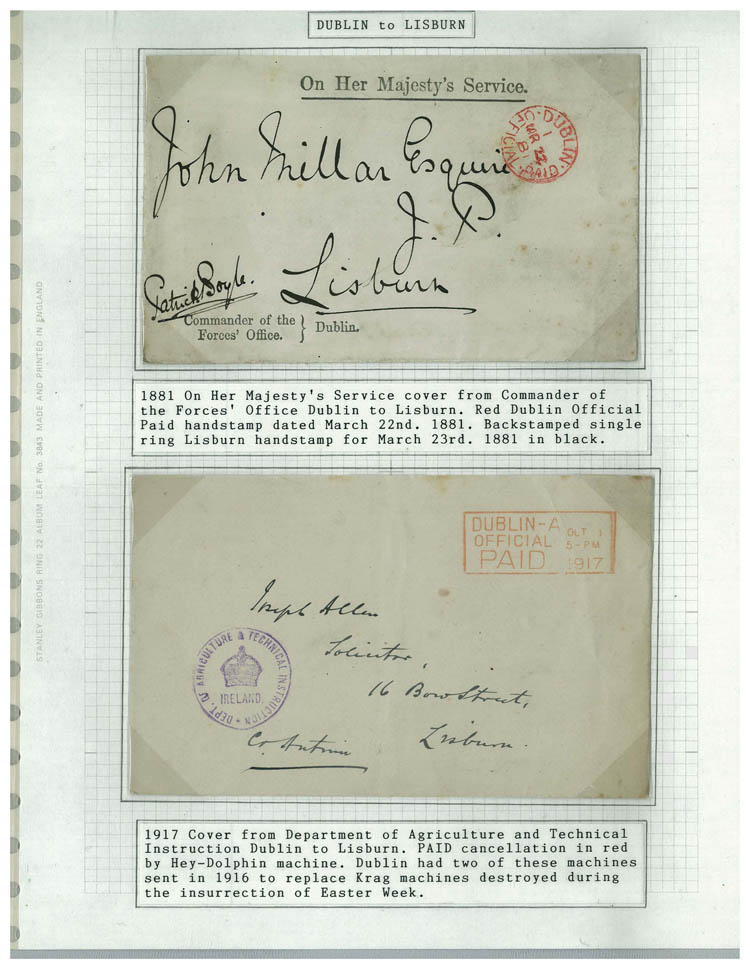 DUBLIN to LISBURN
On Her Majesty's Service.
DUBLIN
1
MR 22
81
OFFICIAL PAID
John Millar Esquire
J. P.
Lisburn
Patrick Boyle.
Commander of the
Forces' Office.
Dublin.
1881 On Her Majesty's Service cover from Commander of
the Forces' Office Dublin to Lisburn. Red Dublin Official
Paid handstamp dated March 22nd. 1881. Backstamped single
ring Lisburn handstamp for March 23rd. 1881 in black.
STANLEY GIBBONS RING 22 ALBUM LEAF No. 3843 MADE AND PRINTED IN ENGLAND
DUBLIN-A
OFFICIAL
PAID
OCT 1
5-PM
1917
Joseph Allen
Solicitor,
16 Bow Street,
Lisburn.
Co. Antrim
DEPT. OF AGRICULTURE & TECHNICAL INSTRUCTION
IRELAND.
1917 Cover from Department of Agriculture and Technical
Instruction Dublin to Lisburn. PAID cancellation in red
by Hey-Dolphin machine. Dublin had two of these machines
sent in 1916 to replace Krag machines destroyed during
the insurrection of Easter Week.